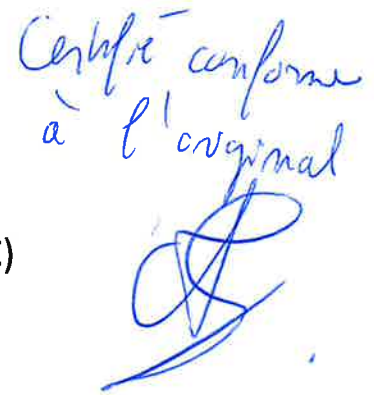 Certifié conforme
à l'original
)